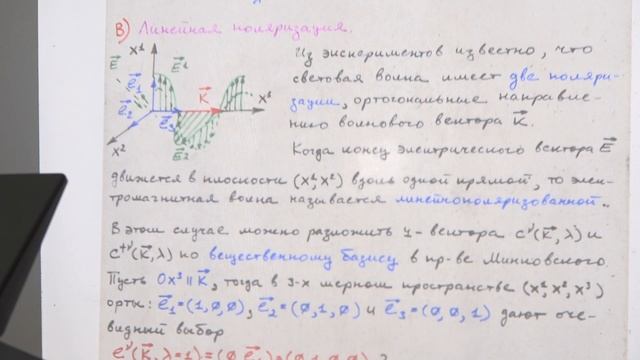 В) Линейная поляризация.
X¹ E⃗ E⃗₁ e⃗₁ K⃗ X³ e⃗₂ e⃗₃ X² E⃗₂
Из экспериментов известно, что
световая волна имеет две поляри-
зации, ортогональные направле-
нию волнового вектора K⃗.
Когда конец электрического вектора E⃗
движется в плоскости (x¹, x²) вдоль одной прямой, то элек-
тромагнитная волна называется линейнополяризованной.
В этом случае можно разложить 4-вектора c^ν(K⃗,λ) и
c^{+ν}(K⃗,λ) по вещественному базису в пр-ве Минковского.
Пусть OX³ ∥ K⃗, тогда в 3-х мерном пространстве (x¹, x², x³)
орты: e⃗₁=(1,0,0), e⃗₂=(0,1,0) и e⃗₃=(0,0,1) дают оче-
видный выбор
e^ν(K⃗,λ=1)=(0,e⃗₁)=(0,1,0,0)